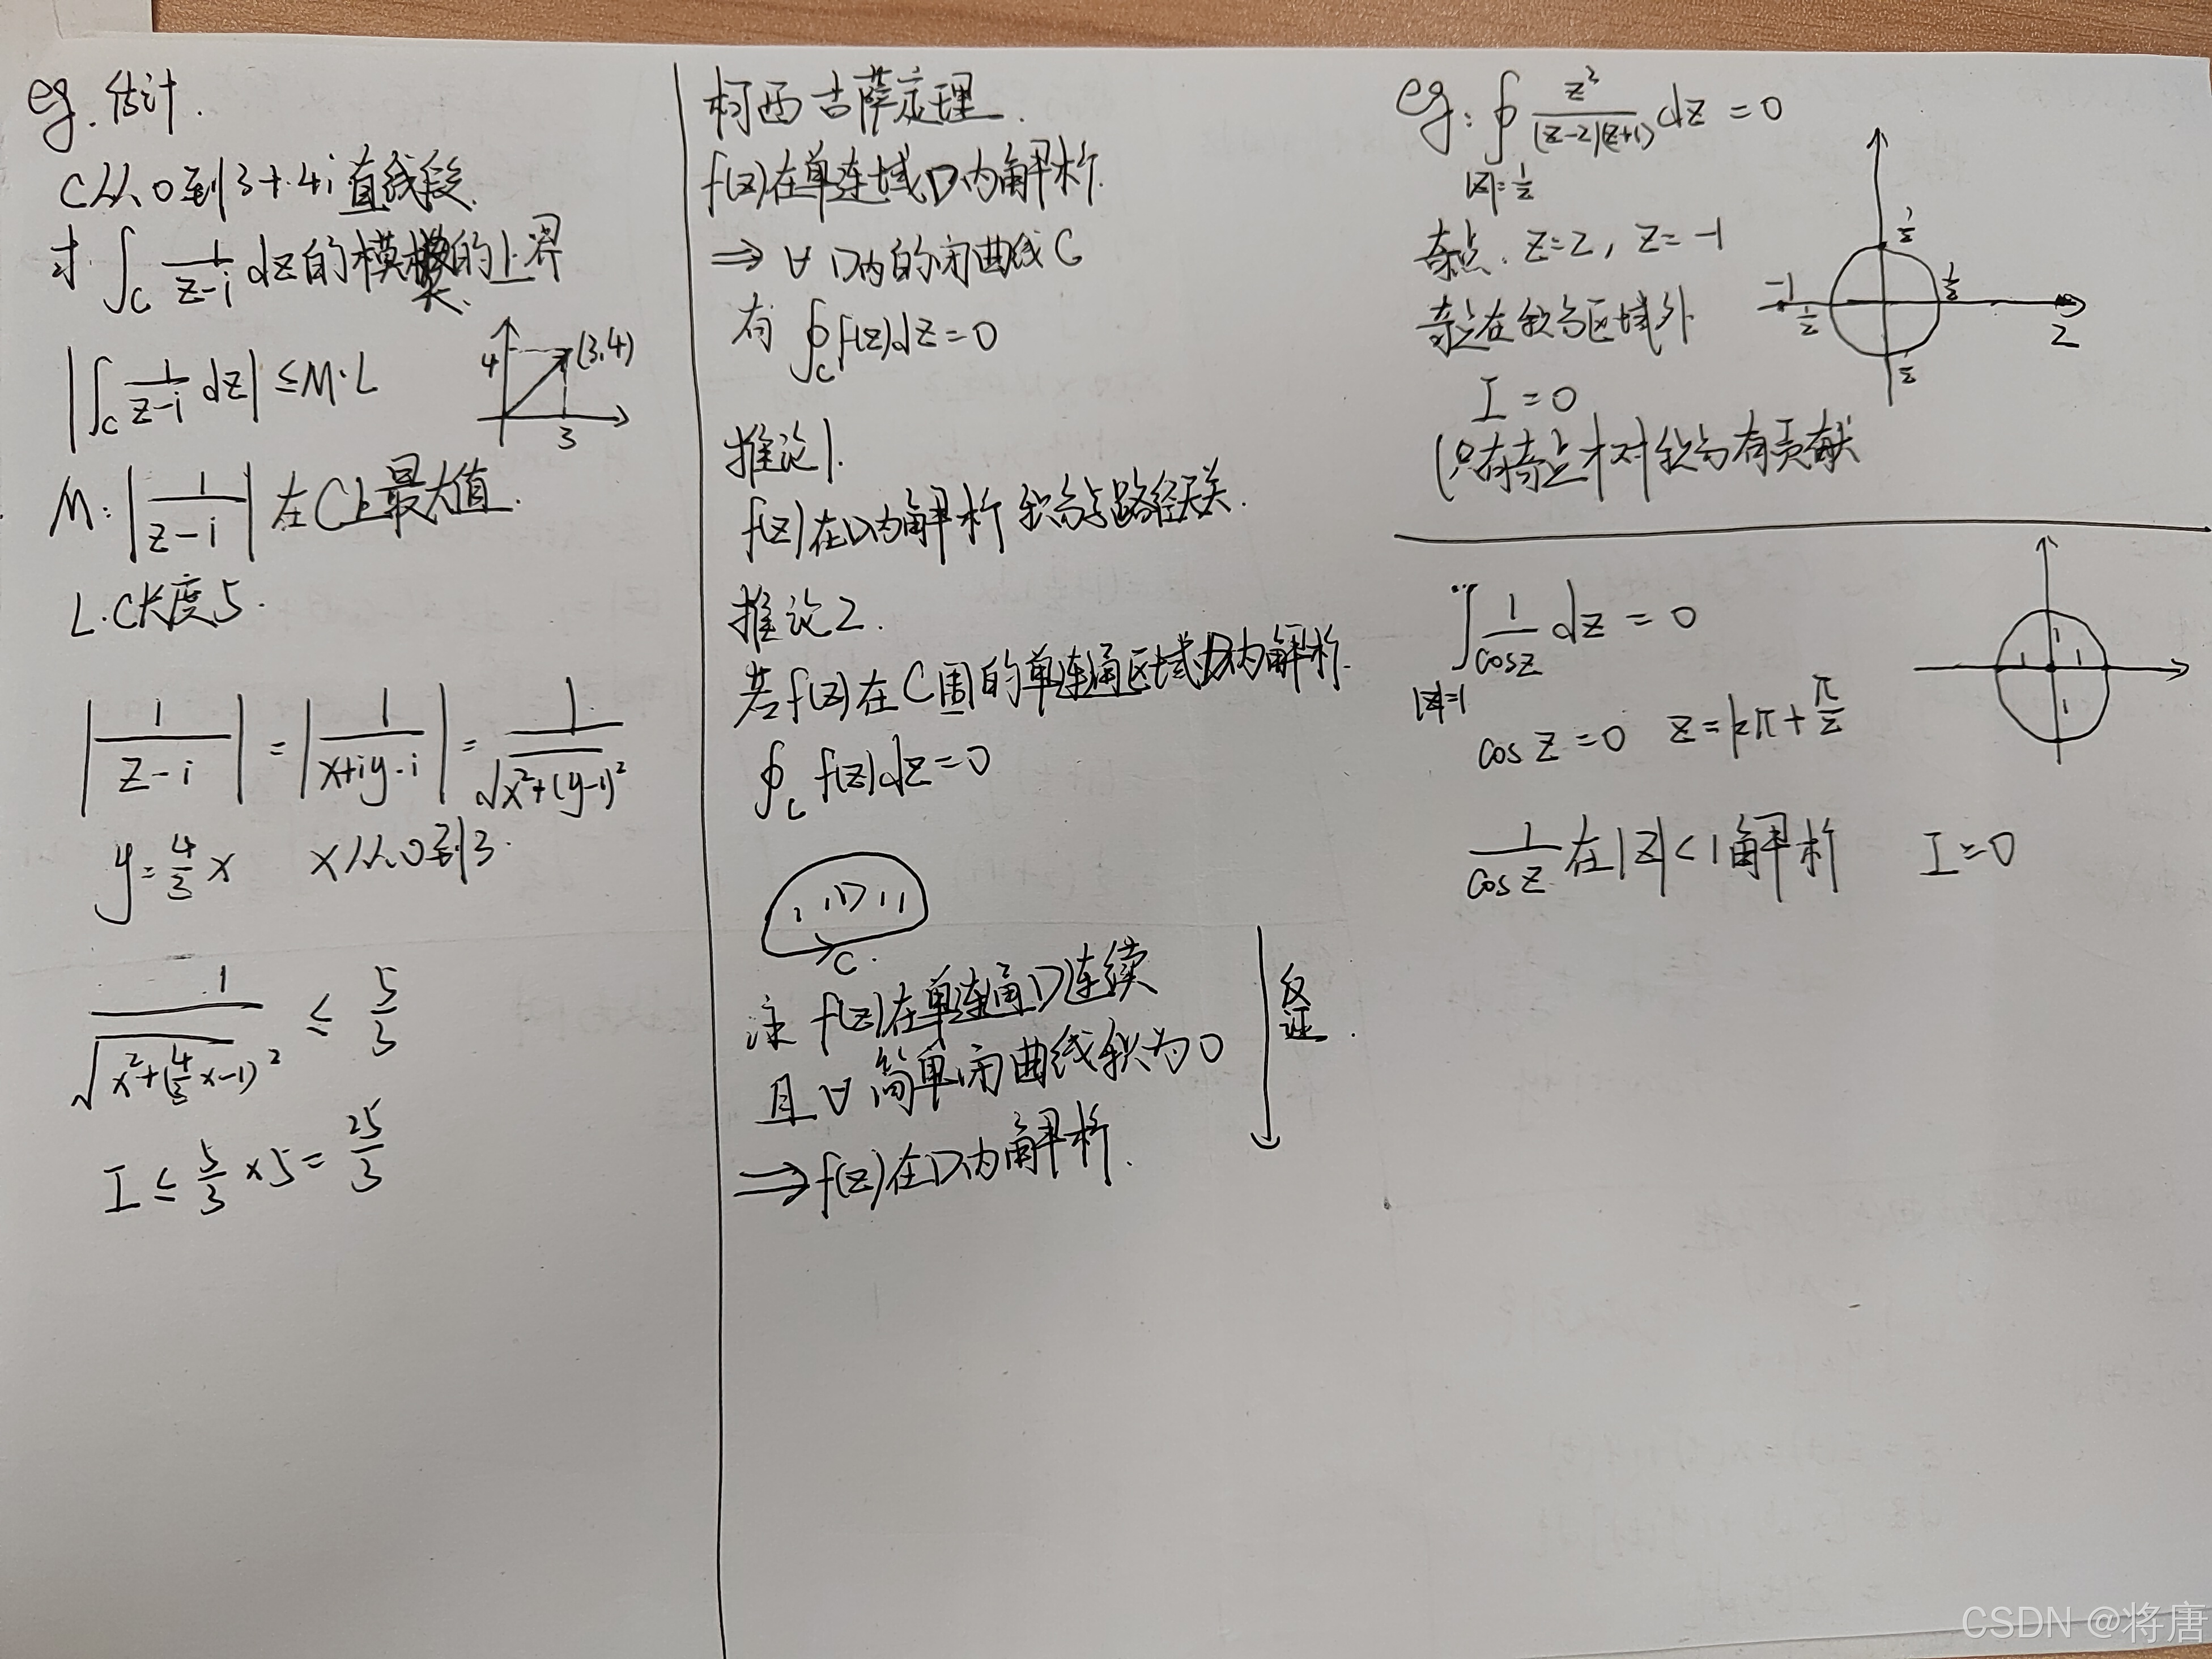 eg. 估计.
C从0到3+4i直线段.
求 ∫_C 1/(z-i) dz的模的上界
|∫_C 1/(z-i) dz| ≤ M·L
4
(3,4)
3
M: |1/(z-i)| 在C上最大值.
L. C长度5.
|1/(z-i)| = |1/(x+iy-i)| = 1/√(x²+(y-1)²)
y=4/3 x x从0到3.
1/√(x²+(4/3 x-1)²) ≤ 5/3
I ≤ 5/3 ×5 = 25/3
柯西古萨定理.
f(z)在单连域D内解析.
⇒ ∀ D内的闭曲线C
有 ∮_C f(z)dz=0
推论1.
f(z)在D内解析 积分与路径无关.
推论2.
若f(z)在C围的单连通区域D内解析.
∮_C f(z)dz=0
D
C.
注 f(z)在单连通D连续
且∀简单闭曲线积为0
⇒ f(z)在D内解析.
反证.
eg: ∮ z³/((z-2)(z+1)) dz = 0
|z|=1/2
奇点. z=2, z=-1
奇点在积分区域外
I = 0
(只有奇点才对积分有贡献
1/2
-1
1/2
1/2
2
1/2
∫ 1/cosz dz = 0
|z|=1
cos z=0 z=kπ+π/2
1/cos z 在|z|<1解析 I=0
CSDN @将唐